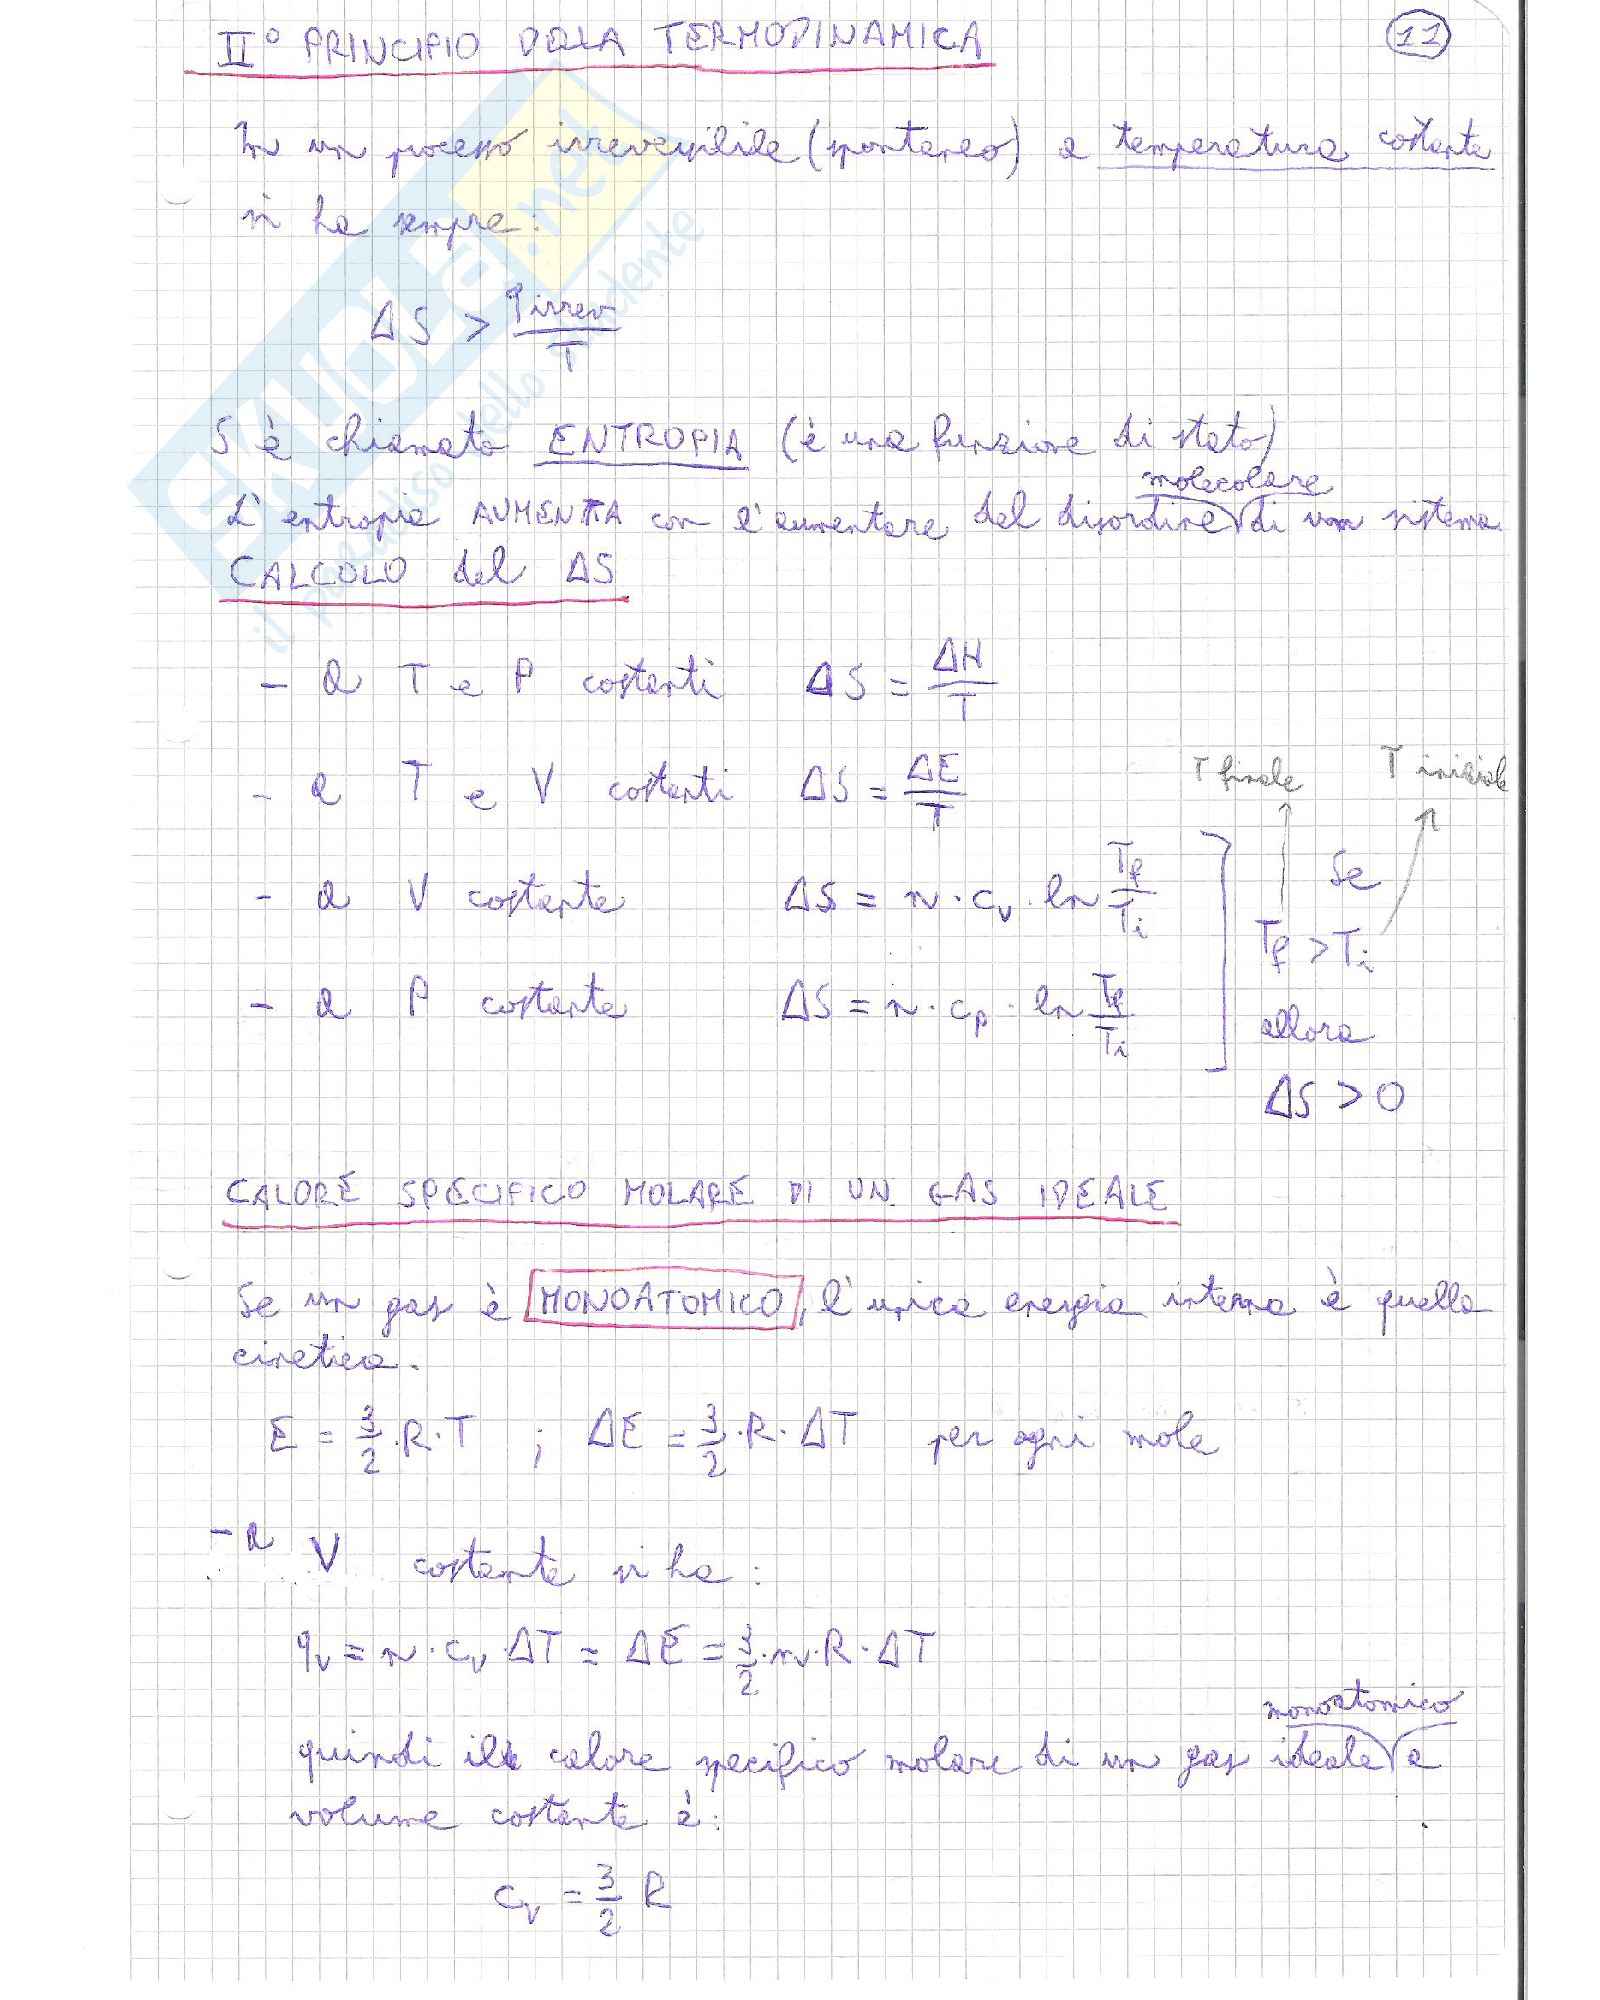 II° PRINCIPIO DELLA TERMODINAMICA
11
In un processo irreversibile (spontaneo) a temperatura costante
si ha sempre:
ΔS > q irrev / T
S è chiamata ENTROPIA (è una funzione di stato)
molecolare
L'entropia AUMENTA con l'aumentare del disordine di un sistema.
CALCOLO del ΔS
- a T e P costanti ΔS = ΔH / T
- a T e V costanti ΔS = ΔE / T
T finale T iniziale
- a V costante ΔS = n · cv · ln Tf / Ti
- a P costante ΔS = n · cp · ln Tf / Ti
Se
Tf > Ti
allora
ΔS > 0
CALORE SPECIFICO MOLARE DI UN GAS IDEALE
Se un gas è MONOATOMICO, l'unica energia interna è quella
cinetica.
E = 3/2 · R · T ; ΔE = 3/2 · R · ΔT per ogni mole
- a V costante si ha:
qv = n · cv · ΔT = ΔE = 3/2 · n · R · ΔT
monoatomico
quindi il calore specifico molare di un gas ideale a
volume costante è:
cv = 3/2 R
SKUOLA.net
il paradiso dello studente